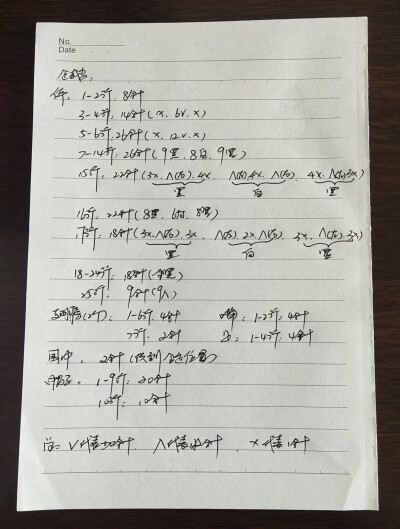 No.
Date
企鹅:
体: 1-2行, 8针
3-4行, 14针(x, 6v, x)
5-6行, 26针(x, 12v, x)
7-14行, 26针(9黑, 8白, 9黑)
15行, 22针(3x, Λ(方), 4x, Λ(方), 4x, Λ(方), 4x, Λ(方), 3x)
黑 白 黑
16行, 22针(8黑, 6白, 8黑)
17行: 18针(3x, Λ(方), 3x, Λ(方), 2x, Λ(方), 3x, Λ(方), 3x)
黑 白 黑
18-24行, 18针(全黑)
25行: 9针(9Λ)
(2个) 1-6行, 4针 嘴: 1-2行, 4针
7行, 2针 1-4行, 4针
围巾, 2针
帽子, 1-9行: 20针
10行: 10针
注: V代表加针, Λ代表减针, x代表1针